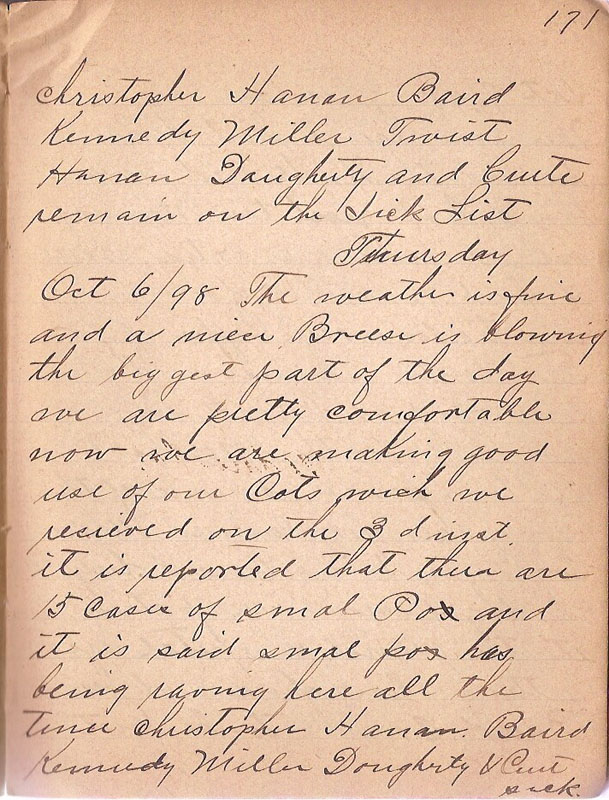 171
Christopher Hanan Baird
Kennedy Miller Twist
Hanan Daugherty and Cuite
remain on the Sick List
Thursday
Oct 6/98 The weather is fine
and a niece Breese is blowing
the biggest part of the day
we are pretty comfortable
now we are making good
use of our Cots wich we
resieved on the 3d inst.
it is reported that thea are
15 Cases of smal Pox and
it is said smal pox has
being raving here all the
time Christopher Hanan. Baird
Kennedy Miller Dougherty & Cuit
sick.